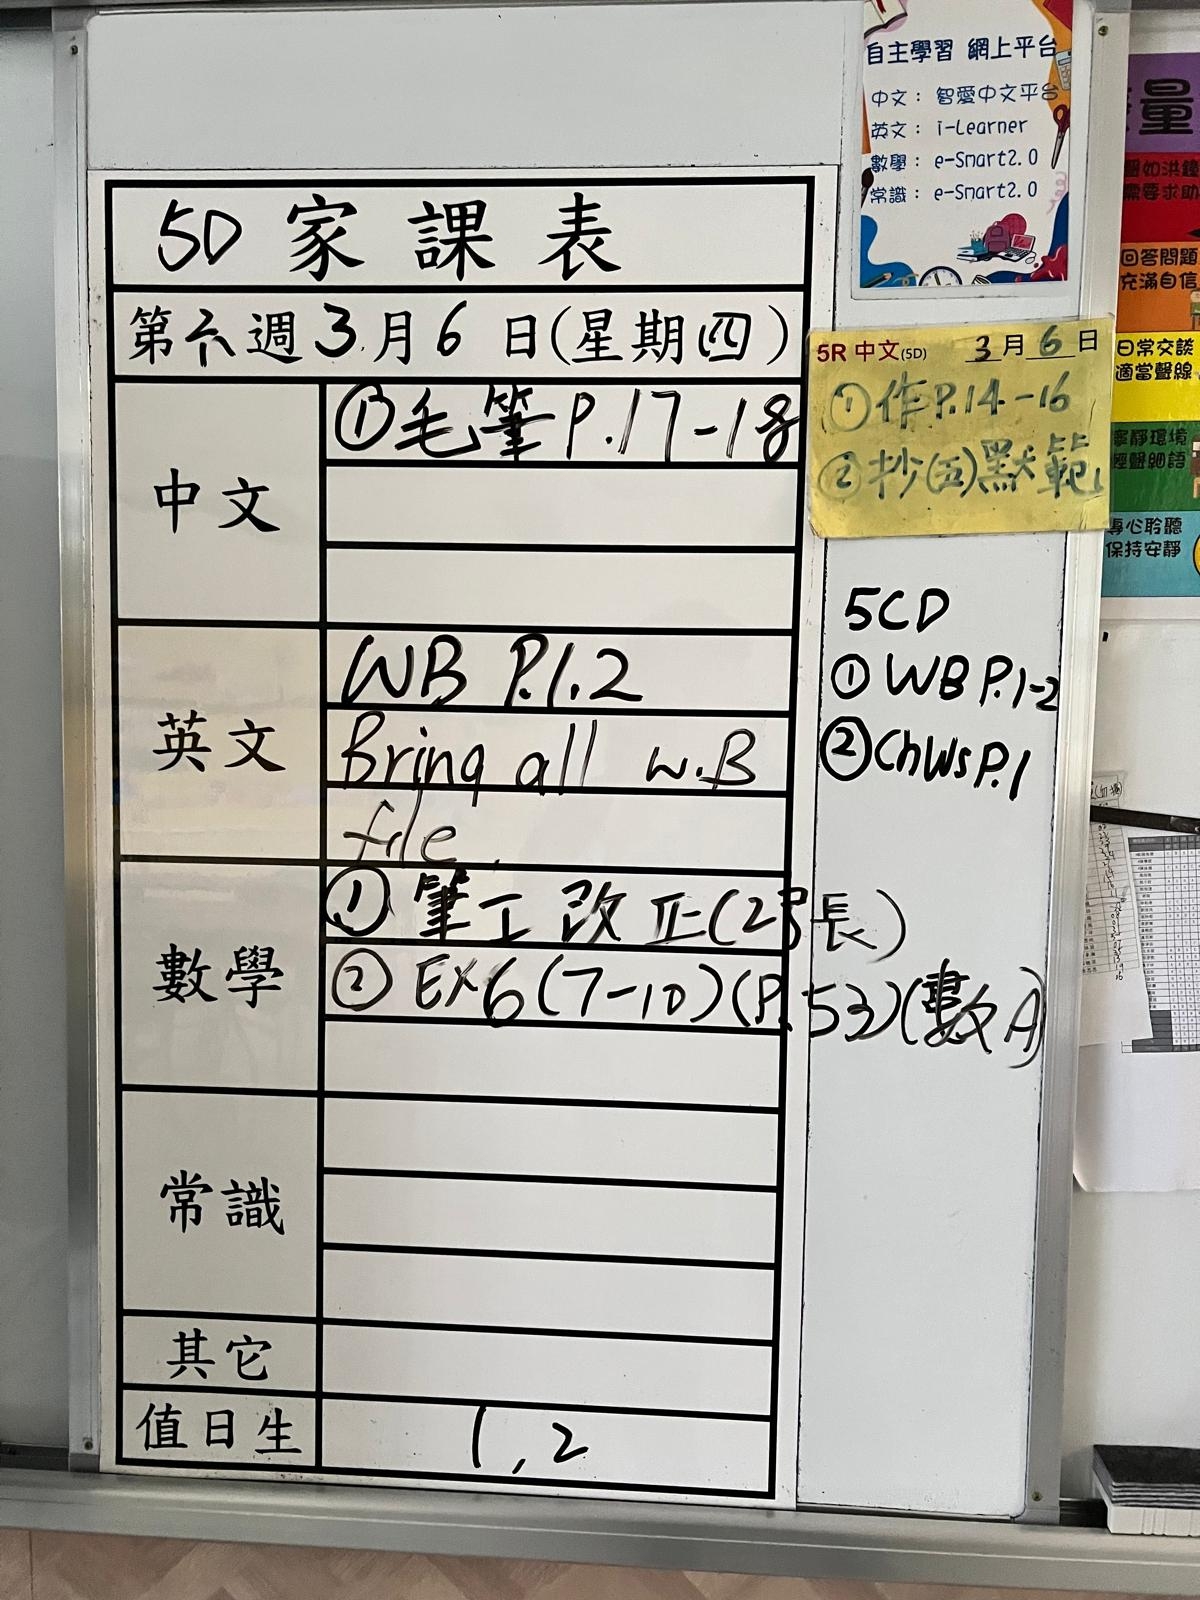 5D 家課表
第六週3月6日(星期四)
中文
①毛筆P.17-18
英文
WB P.1.2
Bring all w.B
file.
數學
① 筆工改正(2
長)
② EX6(7-10)(P.53)(數A)
常識
其它
值日生
1,2
自主學習 網上平台
中文： 智愛中文平台
英文： i-Learner
數學： e-Smart2.0
常識： e-Smart2.0
5R 中文(5D) 3月6日
①作P.14-16
②抄(五)默範
5CD
① WB P.1-2
② ChWs P.1
量
聲如洪鐘
需要求助
回答問題
充滿自信
日常交談
適當聲線
寧靜環境
輕聲細語
專心聆聽
保持安靜